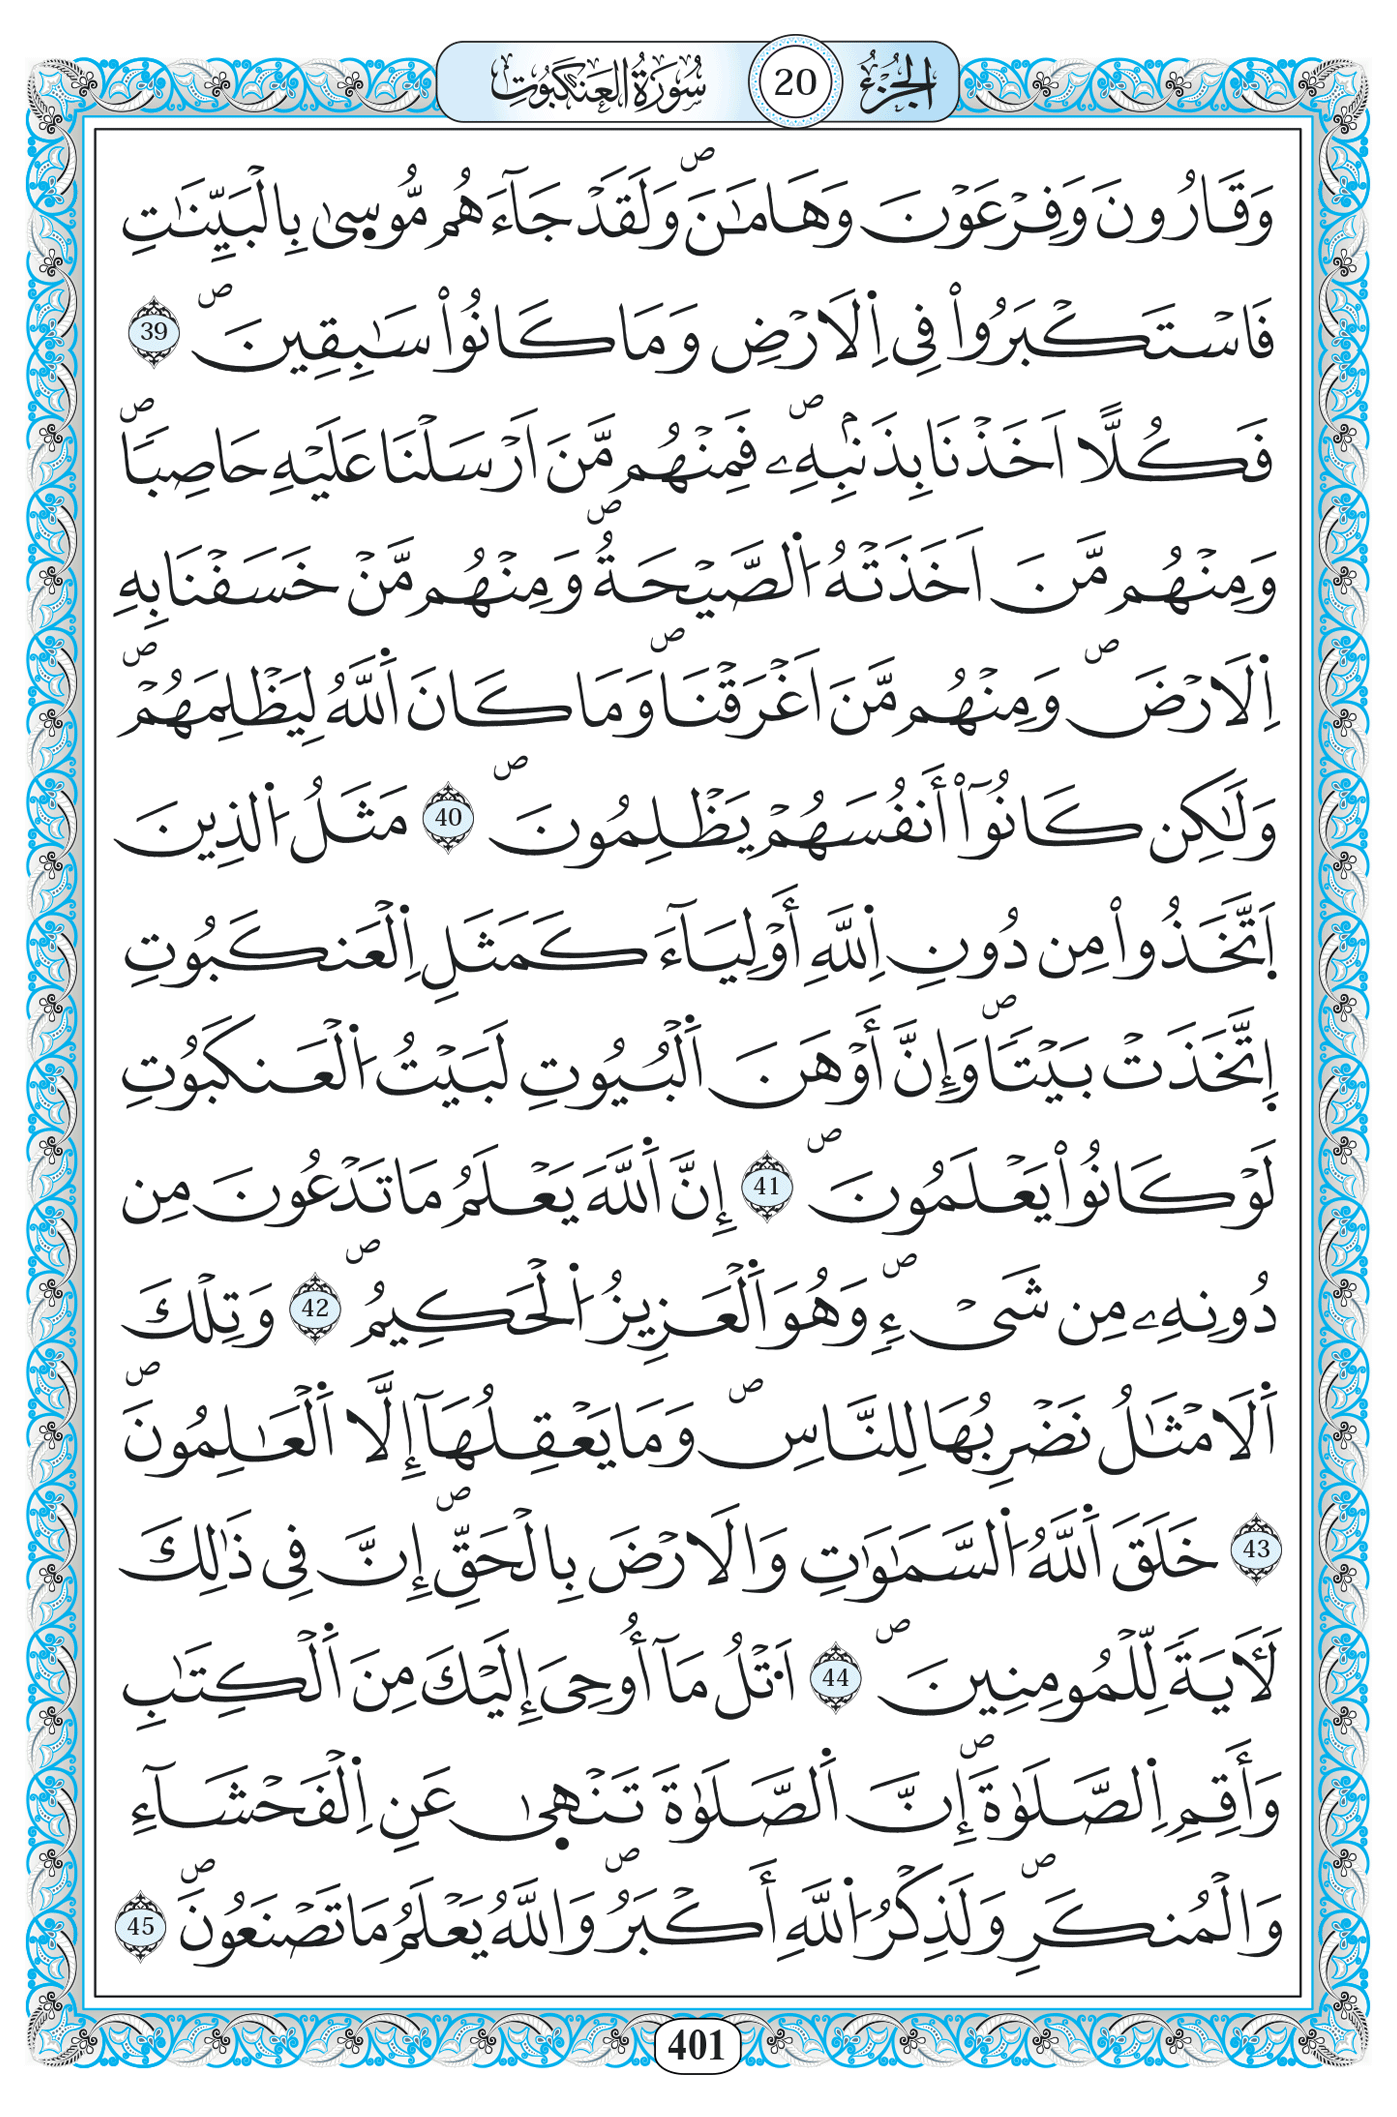 الجزء 20 سورة العنكبوت
وَقَٰرُونَ وَفِرْعَوْنَ وَهَٰمَٰنَۖ وَلَقَدْ جَآءَهُم مُّوسۭيٰ بِالْبَيِّنَٰتِ
فَاسْتَكْبَرُواْ فِي اِ۬لَارْضِ وَمَا كَانُواْ سَٰبِقِينَۖ 39
فَكُلّاً اَخَذْنَا بِذَنۢبِهِۦۖ فَمِنْهُم مَّنَ اَرْسَلْنَا عَلَيْهِ حَاصِباٗۖ
وَمِنْهُم مَّنَ اَخَذَتْهُ اُ۬لصَّيْحَةُۖ وَمِنْهُم مَّنْ خَسَفْنَا بِهِ
اِ۬لَارْضَۖ وَمِنْهُم مَّنَ اَغْرَقْنَاۖ وَمَا كَانَ اَ۬للَّهُ لِيَظْلِمَهُمْۖ
وَلَٰكِن كَانُوٓاْ أَنفُسَهُمْ يَظْلِمُونَۖ 40 مَثَلُ اُ۬لذِينَ
اَ۪تَّخَذُواْ مِن دُونِ اِ۬للَّهِ أَوْلِيَآءَ كَمَثَلِ اِ۬لْعَنكَبُوتِ
اِ۪تَّخَذَتْ بَيْتاٗۖ وَإِنَّ أَوْهَنَ اَ۬لْبُيُوتِ لَبَيْتُ اُ۬لْعَنكَبُوتِ
لَوْ كَانُواْ يَعْلَمُونَۖ 41 إِنَّ اَ۬للَّهَ يَعْلَمُ مَا تَدْعُونَ مِن
دُونِهِۦ مِن شَيْءٖۖ وَهُوَ اَ۬لْعَزِيزُ اُ۬لْحَكِيمُۖ 42 وَتِلْكَ
اَ۬لَامْثَٰلُ نَضْرِبُهَا لِلنَّاسِۖ وَمَا يَعْقِلُهَآ إِلَّا اَ۬لْعَٰلِمُونَۖ
43 خَلَقَ اَ۬للَّهُ اُ۬لسَّمَٰوَٰتِ وَالَارْضَ بِالْحَقِّۖ إِنَّ فِي ذَٰلِكَ
لَأٓيَةٗ لِّلْمُومِنِينَۖ 44 اَ۟تْلُ مَآ أُوحِيَ إِلَيْكَ مِنَ اَ۬لْكِتَٰبِ
وَأَقِمِ اِ۬لصَّلَوٰةَۖ إِنَّ اَ۬لصَّلَوٰةَ تَنْهۭيٰ عَنِ اِ۬لْفَحْشَآءِ
وَالْمُنكَرِۖ وَلَذِكْرُ اُ۬للَّهِ أَكْبَرُۖ وَاللَّهُ يَعْلَمُ مَا تَصْنَعُونَۖ 45
401